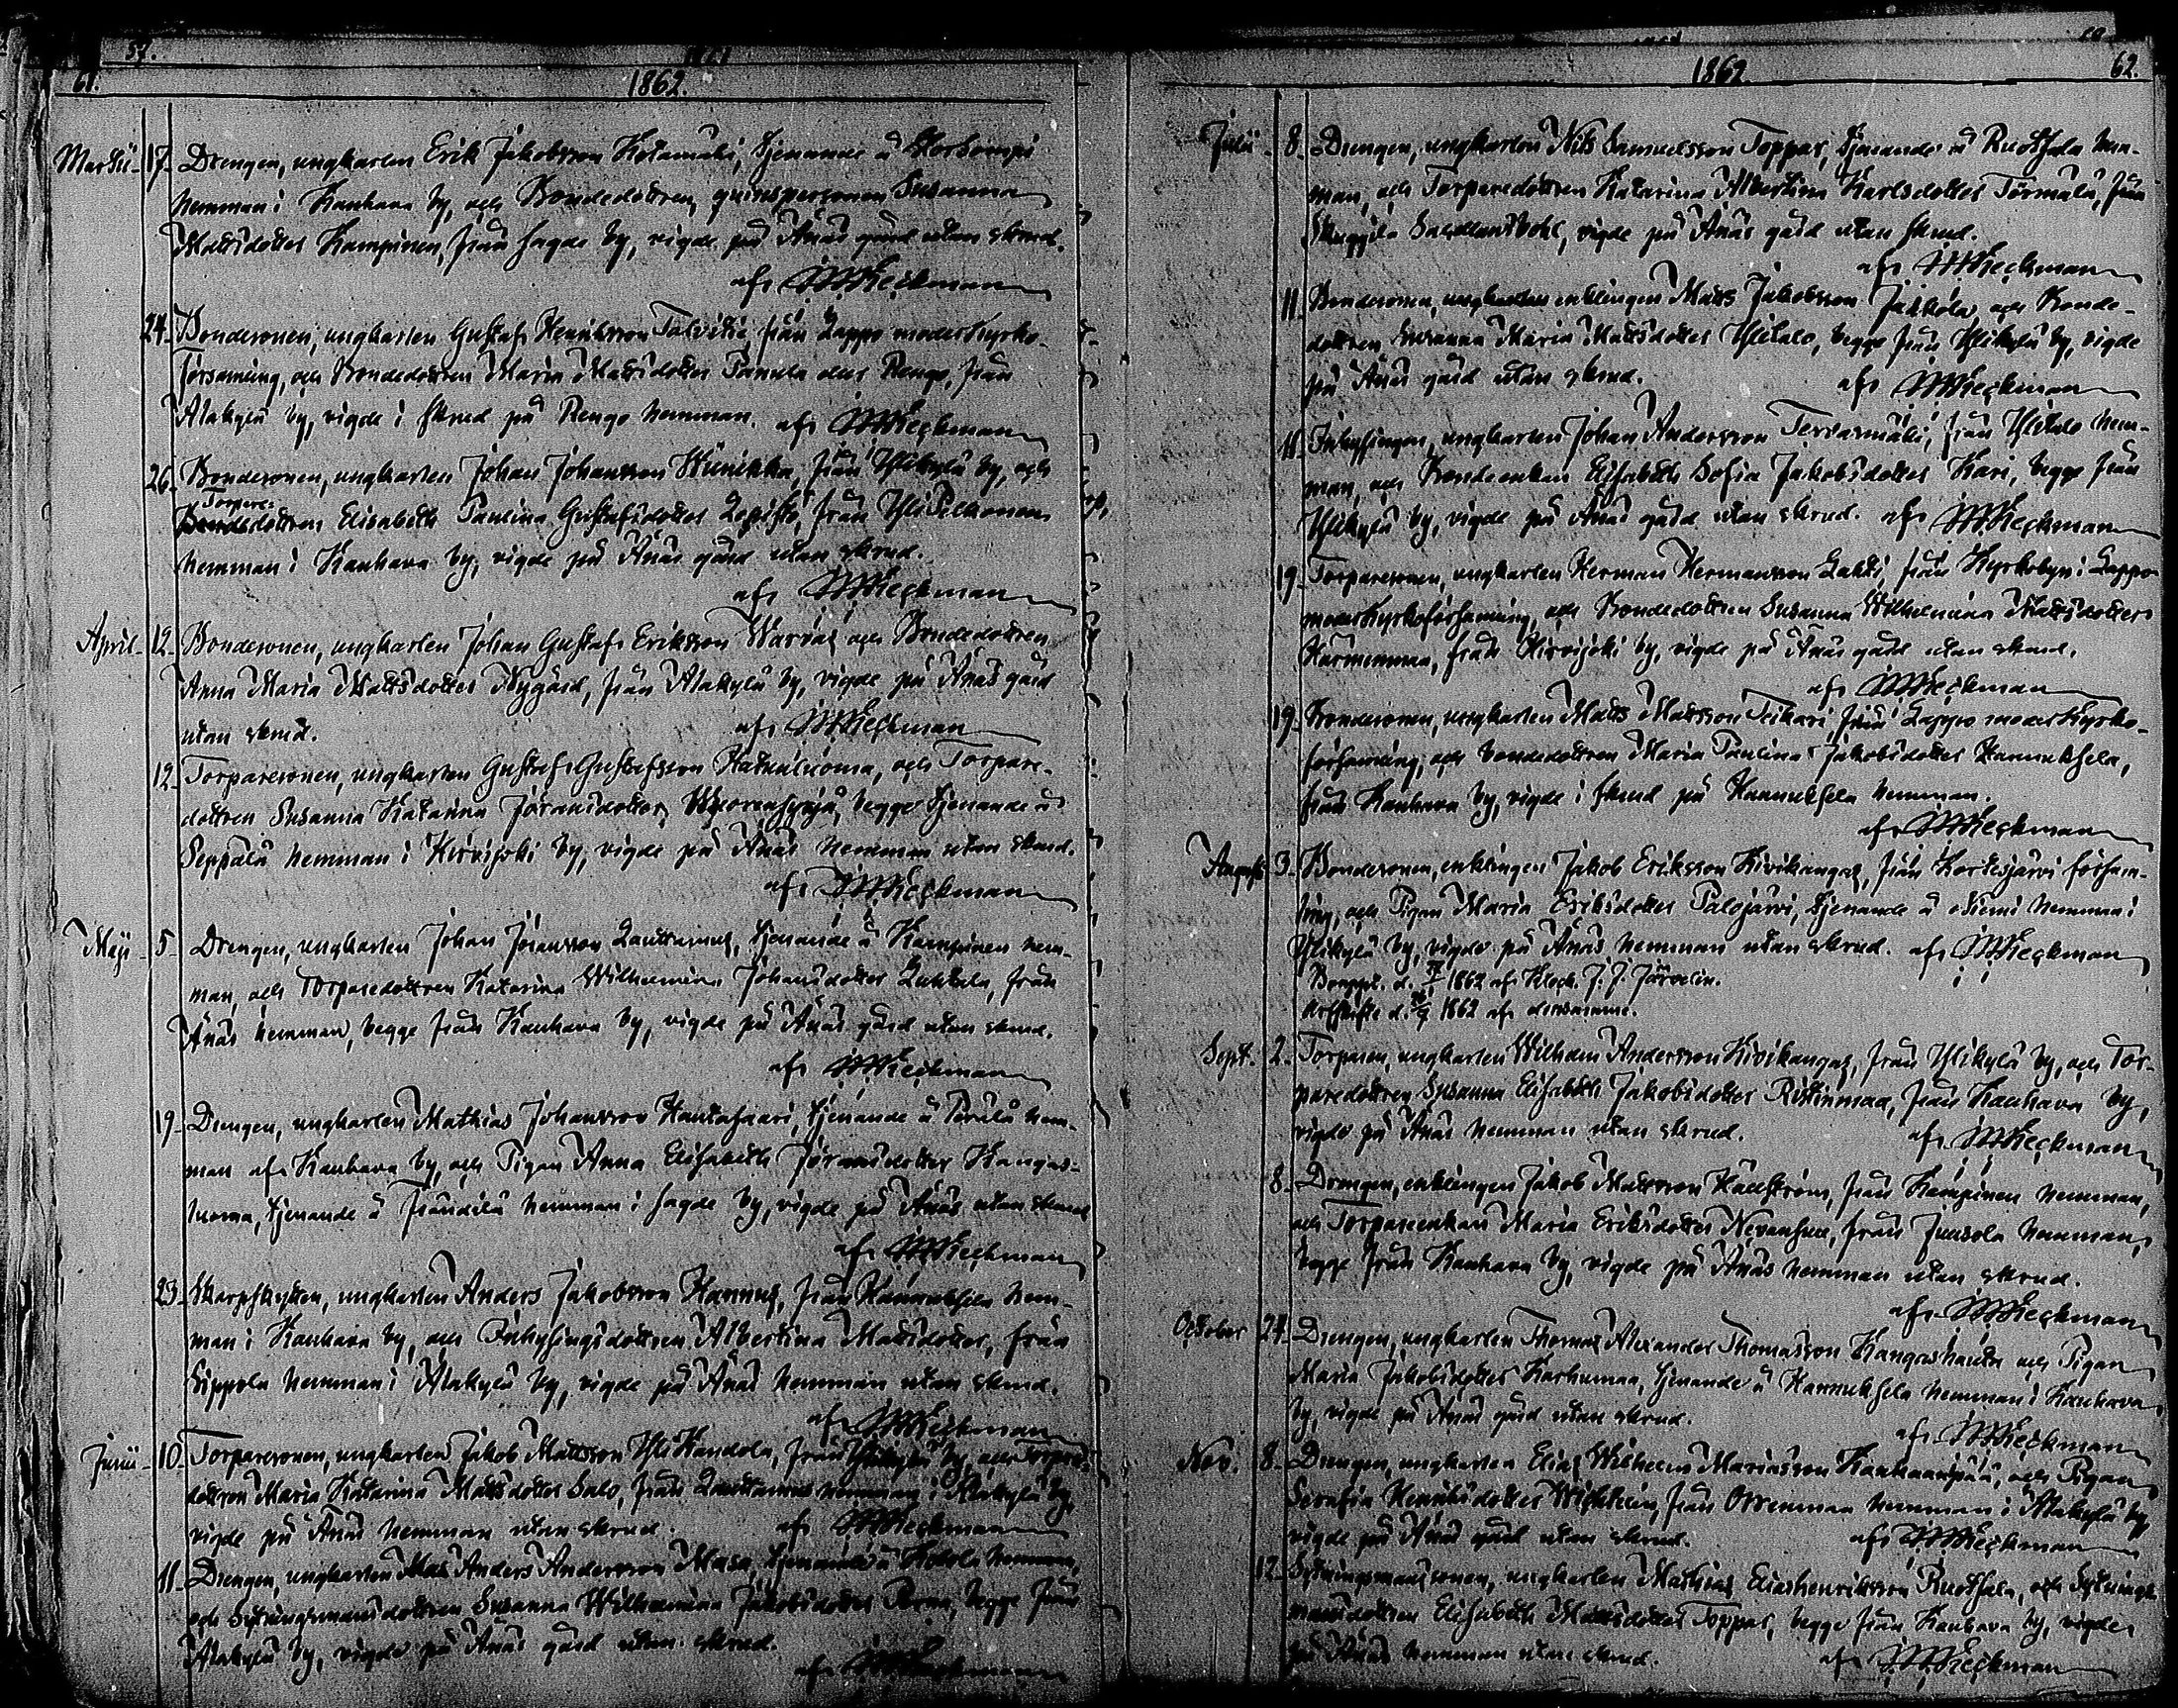 57.
61.
1862.
Martii 17. Drengen, ungkarlen Erik Jakobsson Kotamäki, tjenande å Storhompi
hemman i Kauhava by, och Bondedottren, qvinspersonen Susanna
Mattsdotter Kampinen, från sagde by, vigde på Änäs gård utan skrud.
af J.M.Keckman
24. Bondesonen, ungkarlen Gustaf Henriksson Talvitie, från Lappo moderkyrko-
församling, och Bondedottren Maria Mattsdotter Panula eller Rengo, från
Alakylä by, vigde i skrud på Rengo hemman. af J.M.Keckman
26. Bondesonen, ungkarlen Johan Johansson Wiinikka, från Ylikylä by, och
Torpare-
dottren Elisabeth Paulina Gustafsdotter Lepistö, från YliPelkonen
hemman i Kauhava by, vigde på Änäs gård utan skrud.
af J.M.Keckman
April 12. Bondesonen, ungkarlen Johan Gustaf Eriksson Warvas och Bondedottren
Anna Maria Mattsdotter Nygård, från Alakylä by, vigde på Änäs gård
utan skrud. af J.M.Keckman
12. Torparesonen, ungkarlen Gustaf Gustafsson och Torpare-
dottren Susanna Katarina Jöransdotter begge tjenande å
Seppälä hemman i Hirvijoki by, vigde på Änäs hemman utan skrud.
af J.M.Keckman
Maji 5. Drengen, ungkarlen Johan Jöransson Lauttamus, tjenande å Kampinen hem-
man, och Torparedottren Katarina Wilhelmina Johansdotter Luhtala, från
Änäs hemman, begge från Kauhava by, vigde på Änäs gård utan skrud.
af J.M.Keckman
19. Drengen, ungkarlen Mathias Johansson Hautasaari, tjenande å hem-
man af Kauhava by, och Pigan Anna Elisabeth Jöransdotter Kangas-
luoma, tjenande å Frändilä hemman i sagde by, vigde på Änäs utan skrud
af J.M.Keckman
23. Skarpskytten, ungkarlen Anders Jakobsson Hannus, från Hannuksela hem-
man i Kauhava by, och Inhysingsdottren Albertina Mattsdotter, från
Sippola hemman i Alakylä by, vigde på Änäs hemman utan skrud.
af J.M.Keckman
Junii 10. Torparesonen, ungkarlen Jakob Mattsson YliKandola, från Ylikylä by, och Torpare-
dottren Maria Katarina Mattsdotter Salo, från Lauttamus hemman i Alakylä by,
vigde på Änäs hemman utan skrud. af J.M.Keckman
11. Drengen, ungkarlen Anders Andersson Masa, tjenande å Kokola hemman,
och Sytningsmansdottren Susanna Wilhelmina Jakobsdotter Perna, begge från
Alakylä by, vigde på Änäs gård utan skrud.
af J.M.Keckman
1862. 62.
Julii 8. Drengen, ungkarlen Nils Samuelsson Toppar, tjenande å Ruotsala hem-
man, och Torparedottren Katarina Albertina Karlsdotter Törmälä, från
vigde på Änäs gård utan skrud.
af J.M.Keckman
11. Bondesonen, enklingen Matts Jakobsson Jakkola, och Bonde-
dottren Susanna Maria Mattsdotter Ylitalo, begge från Ylikylä by, vigde
på Änäs gård utan skrud. af J.M.Keckman
11. Inhysingen, ungkarlen Johan Andersson Tervasmäki, från Ylitalo hem-
man, och Bondeenkan Elisabeth Sofia Jakobsdotter Kari, begge från
Ylikylä by, vigde på Änäs gård utan skrud. af J.M.Keckman
19. Torparesonen, ungkarlen Herman Hermansson Lahti, från Kyrkobyn i Lappo
moderkyrkoförsamling, och Bondedottren Susanna Wilhelmina Mattsdotter
Harmenmaa, från Hirvijoki by, vigde på Änäs gård utan skrud.
af J.M.Keckman
19. Bondesonen, ungkarlen Matts Mattsson Teikari, från Lappo moderkyrko-
församling, och bondedottren Maria Paulina Jakobsdotter Hannuksela,
från Kauhava by, vigde i skrud på Hannuksela hemman.
af J.M.Keckman
Augusti 3. Bondesonen, enklingen Jakob Eriksson Kivikangas, från Kortesjärvi försam-
ling, och Pigan Maria Eriksdotter Palojärvi, tjenande å Niemi hemman i
Ylikylä by, vigde på Änäs hemman utan skrud. af J.M.Keckman
1862 af Klock. J. J. Järvelin.
1862 af densamme.
Sept. 2. Torparen, ungkarlen Wilhelm Andersson Kivikangas, från Ylikylä by, och Tor-
paredottren Susanna Elisabeth Jakobsdotter Ristinmaa, från Kauhava by,
vigde på Änäs hemman utan skrud. af J.M.Keckman
8. Drengen, enklingen Jakob Mattsson Hällström, från Kampinen hemman,
och Torpareenkan Maria Eriksdotter från Juusola hemman,
begge från Kauhava by, vigde på Änäs hemman utan skrud.
af J.M.Keckman
October 24. Drengen, ungkarlen Thomas Alexander Thomasson Kangashauta och Pigan
Maria Jakobsdotter Karhumaa, tjenande å Hannuksela hemman i Kauhava
by, vigde på Änäs gård utan skrud.
af J.M.Keckman
Nov. 8. Drengen, ungkarlen Elias Wilhelm Mariasson Kauhaanpää, och Pigan
Serafia Henriksdotter från Orrenmaa hemman i Alakylä by,
vigde på Änäs gård utan skrud. af J.M.Keckman
12. Sytningsmanssonen, ungkarlen Mathias Eliashenriksson Ruotsala, och Sytnings-
mansdottren Elisabeth Mattsdotter Toppar, begge från Kauhava by, vigde
på Änäs hemman utan skrud. af J.M.Keckman